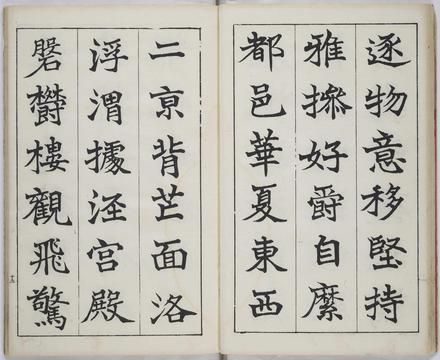 逐物意移堅持
雅摻好爵自縻
都邑華夏東西
二亰背芒面洛
浮渭據涇宮殿
磐欝樓觀飛驚